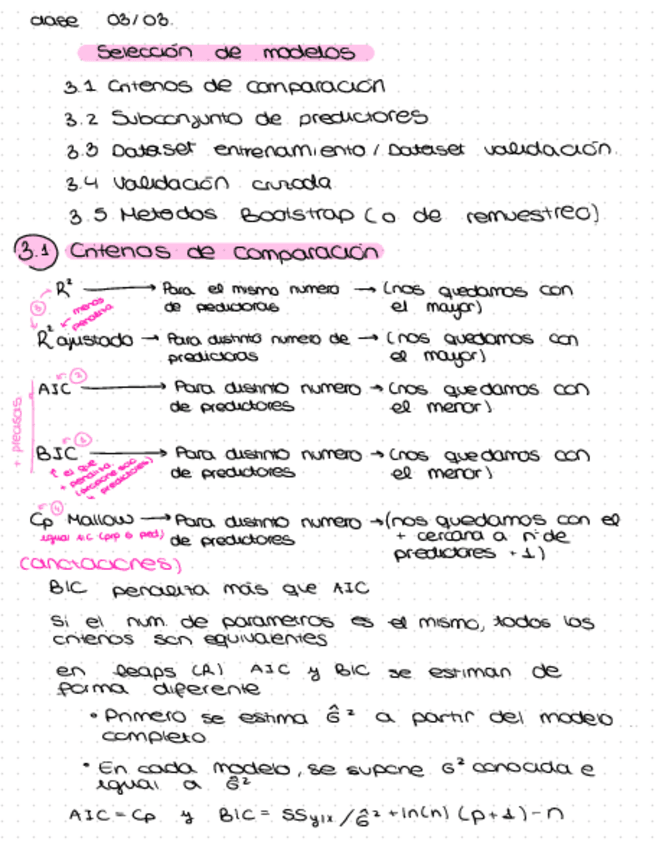 clase 03/03.
Selección de modelos
3.1 Criterios de comparación
3.2 Subconjunto de predictores
3.3 Dataset entrenamiento / Dataset validación.
3.4 Validación cruzada
3.5 Metodos Bootstrap (o de remuestreo)
3.1) Criterios de comparación
R² → Para el mismo numero → (nos quedamos con
de pedictoras el mayor)
③ menos
penaliza
R² ajustado → Para distinto numero de → (nos quedamos con
predictoras el mayor)
+ precisas.
②
AIC → Para distinto numero → (nos quedamos con
de predictores el menor)
①
BIC → Para distinto numero → (nos quedamos con
de predictores el menor)
el que
+ penaliza
predictores)
④
Cp Mallow → Para distinto numero → (nos quedamos con el
igual AIC de predictores + cercana a nº de
predictores + 1)
(anotaciones)
BIC penaliza más que AIC
Si el num. de parametros es el mismo, todos los
criterios son equivalentes
en leaps (R) AIC y BIC se estiman de
forma diferente
• Primero se estima σ̂² a partir del modelo
completo
• En cada modelo, se supone σ² conocida e
igual a σ̂²
AIC = Cp y BIC = SSy|x / σ̂² + ln(n) (p+1) - n